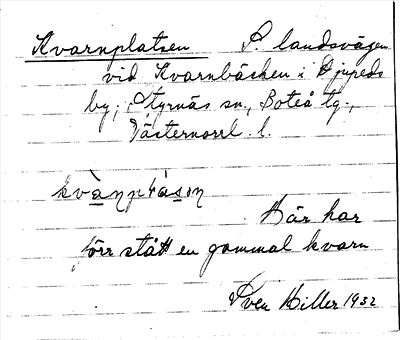 Kvarnplatsen P. landsvägen
vid Kvarnbäcken i Djupeds
by, Styrnäs sn., Boteå tg.,
Västernorrl. l.
kvànpláson
Här har
förr stått en gammal kvarn
Sven Hiller 1932